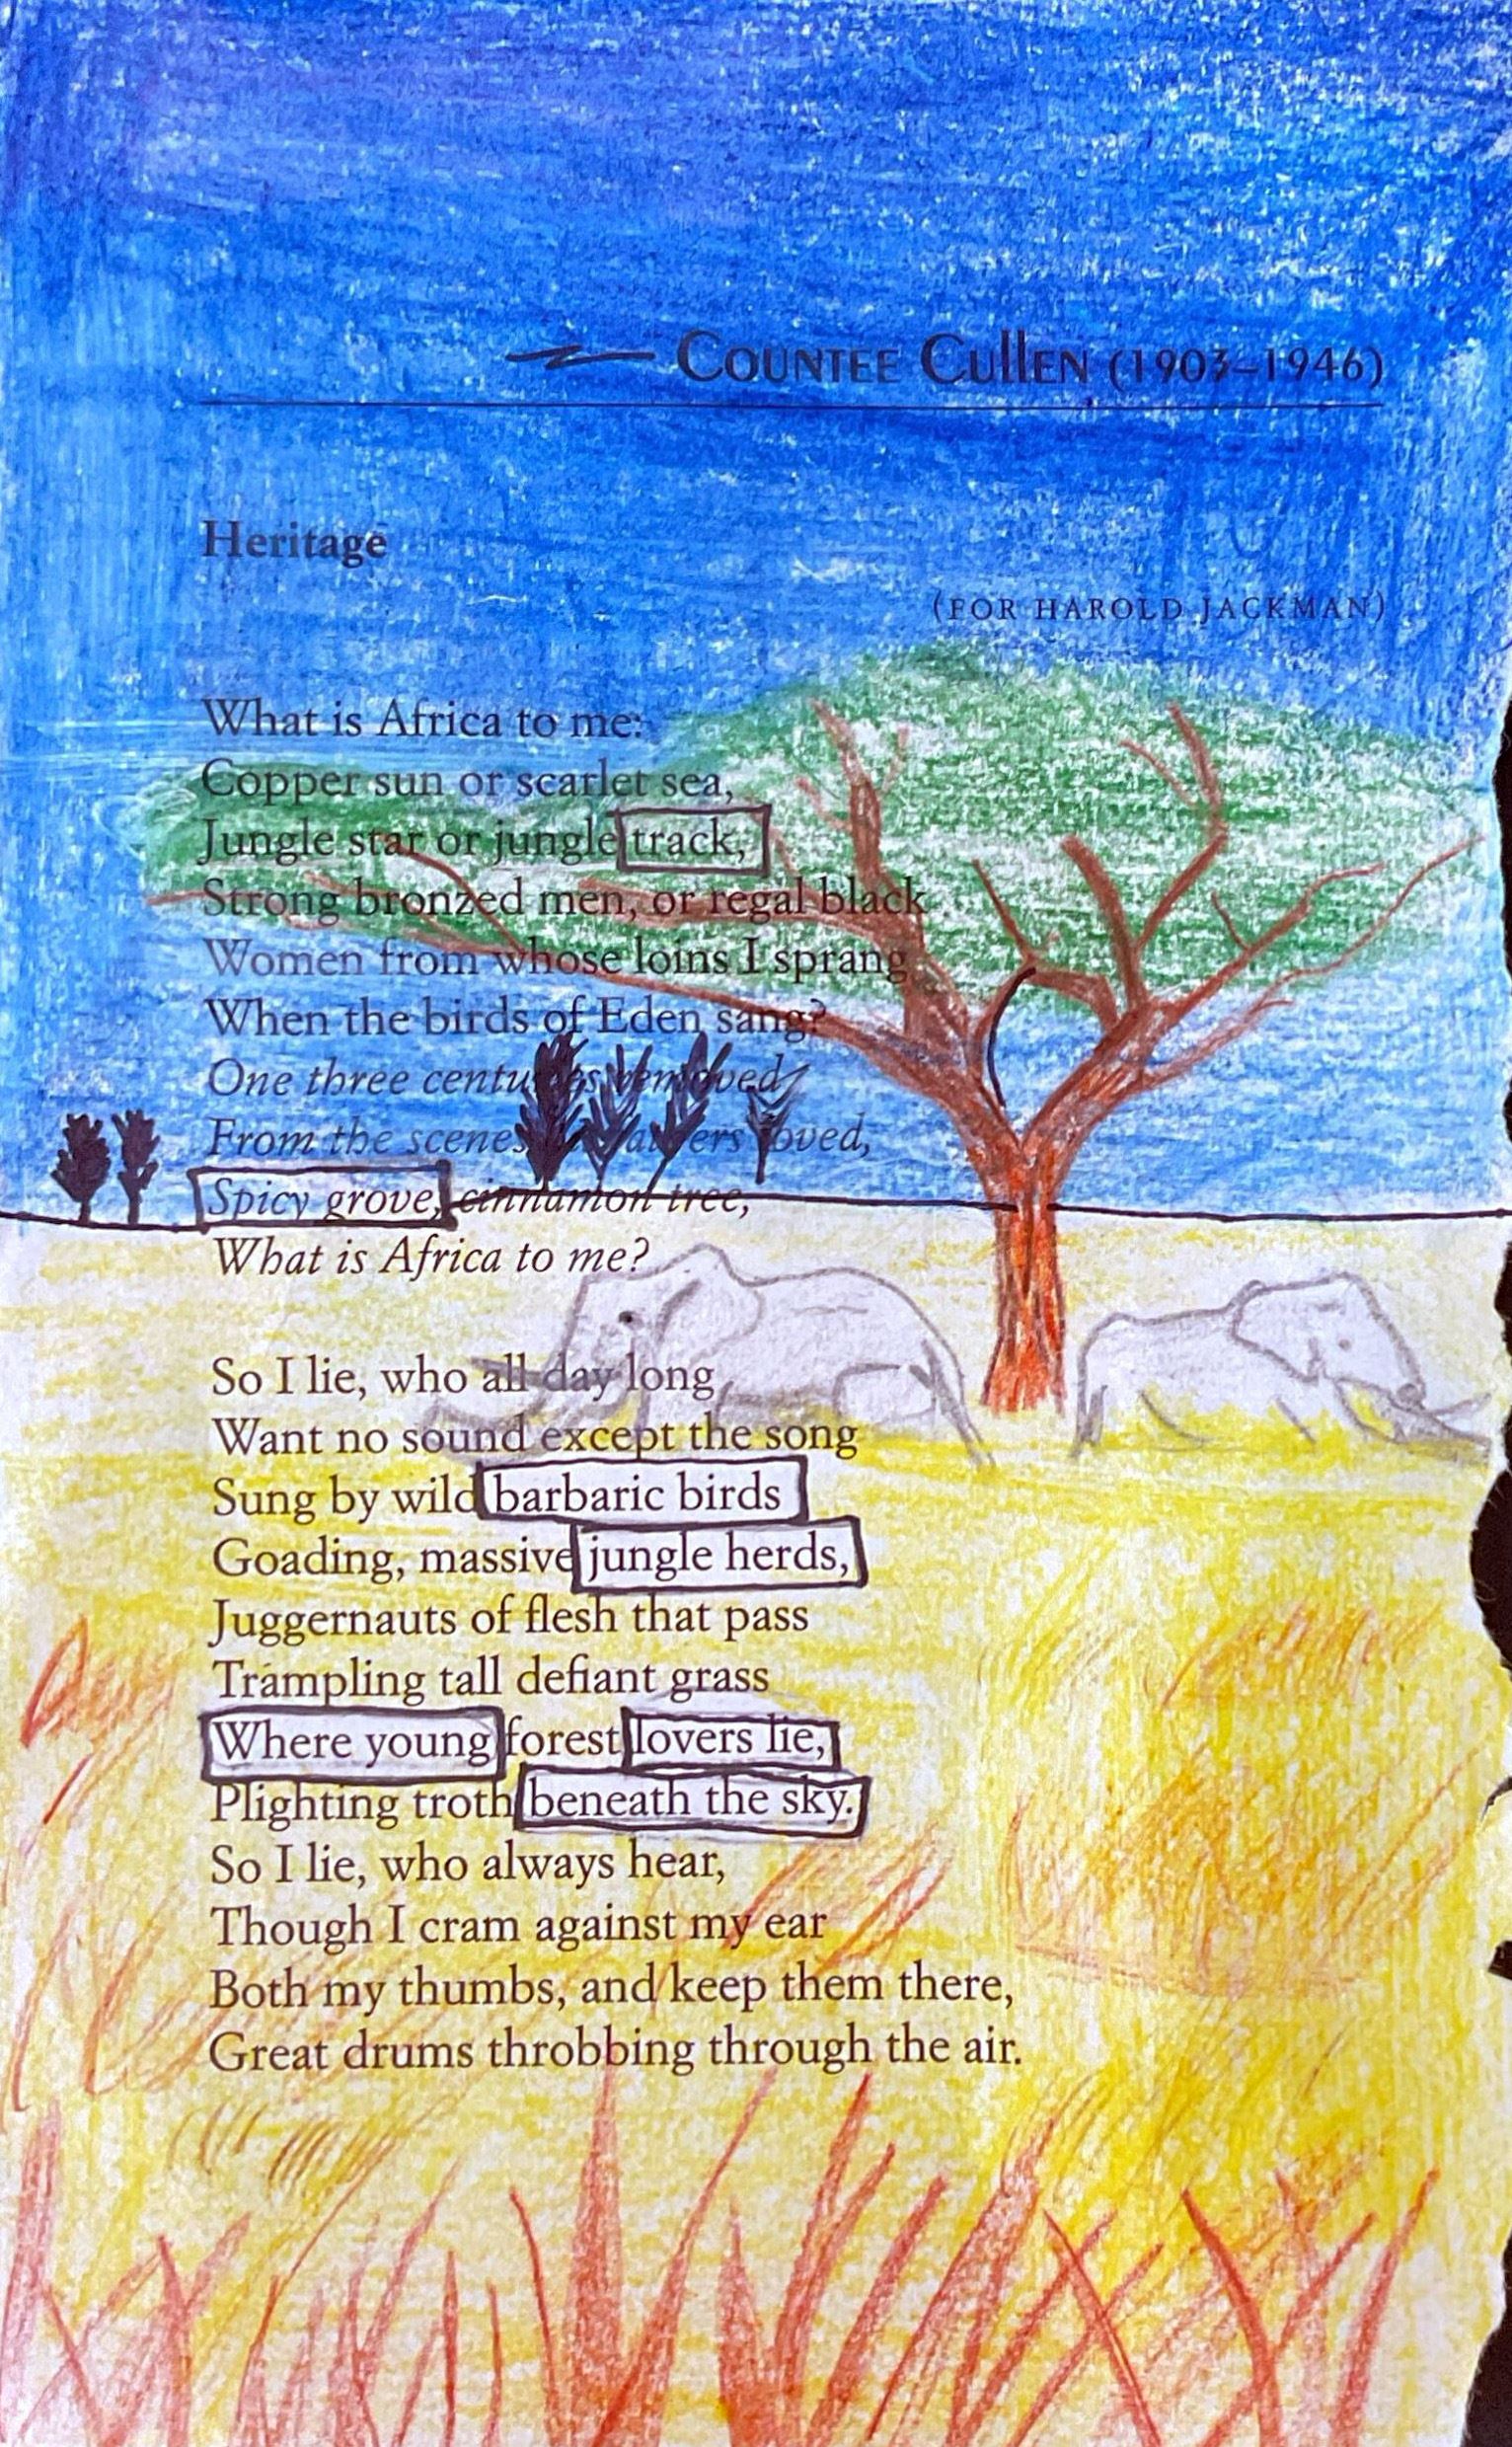 COUNTEE CULLEN (1903–1946)
Heritage
(FOR HAROLD JACKMAN)
What is Africa to me:
Copper sun or scarlet sea,
Jungle star or jungle track,
Strong bronzed men, or regal black
Women from whose loins I sprang
When the birds of Eden sang?
One three centuries removed
From the scenes loved,
Spicy grove, cinnamon tree,
What is Africa to me?
So I lie, who all day long
Want no sound except the song
Sung by wild barbaric birds
Goading, massive jungle herds,
Juggernauts of flesh that pass
Trampling tall defiant grass
Where young forest lovers lie,
Plighting troth beneath the sky.
So I lie, who always hear,
Though I cram against my ear
Both my thumbs, and keep them there,
Great drums throbbing through the air.